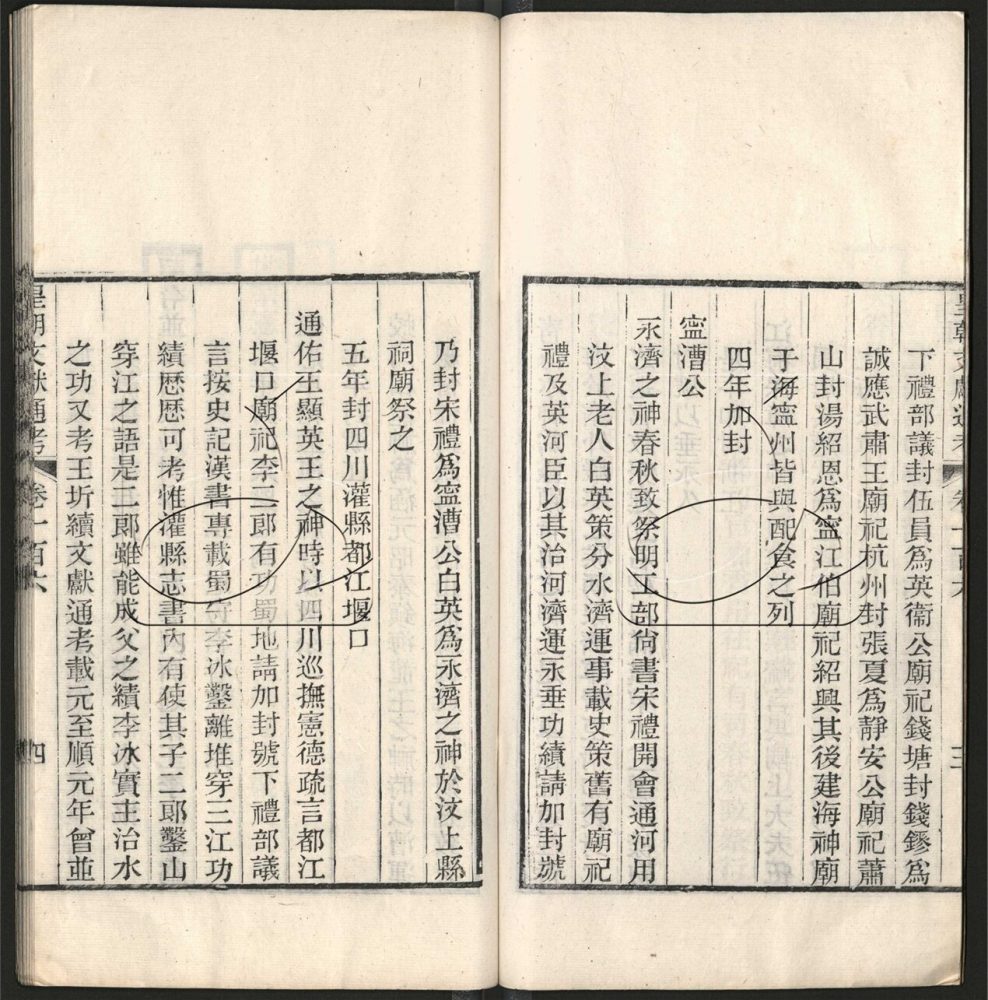 下禮部議封伍員爲英衞公廟祀錢塘封錢鏐爲
誠應武肅王廟祀杭州封張夏爲靜安公廟祀蕭
山封湯紹恩爲寧江伯廟祀紹興其後建海神廟
于海寧州皆與配食之列
四年加封
寧漕公
永濟之神春秋致祭明工部尙書宋禮開會通河用
汶上老人白英策分水濟運事載史策舊有廟祀
禮及英河臣以其治河濟運永垂功績請加封號
乃封宋禮爲寧漕公白英爲永濟之神於汶上縣
祠廟祭之
五年封四川灌縣都江堰口
通佑王顯英王之神時以四川巡撫憲德疏言都江
堰口廟祀李二郎有功蜀地請加封號下禮部議
言按史記漢書專載蜀守李冰鑿離堆穿三江功
績歷歷可考惟灌縣志書內有使其子二郎鑿山
穿江之語是二郎雖能成父之績李冰實主治水
之功又考王圻續文獻通考載元至順元年曾並
皇朝文獻通考 卷一百六 四